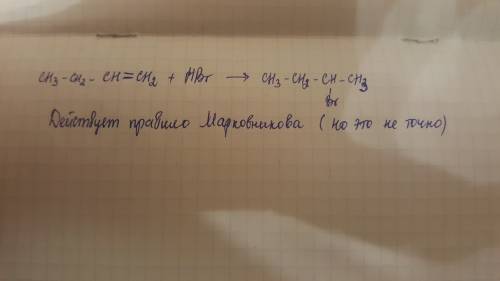 CH3-CH2-CH=CH2 + HBr → CH3-CH2-CH-CH3
Br
Действует правило Марковникова (но это не точно)